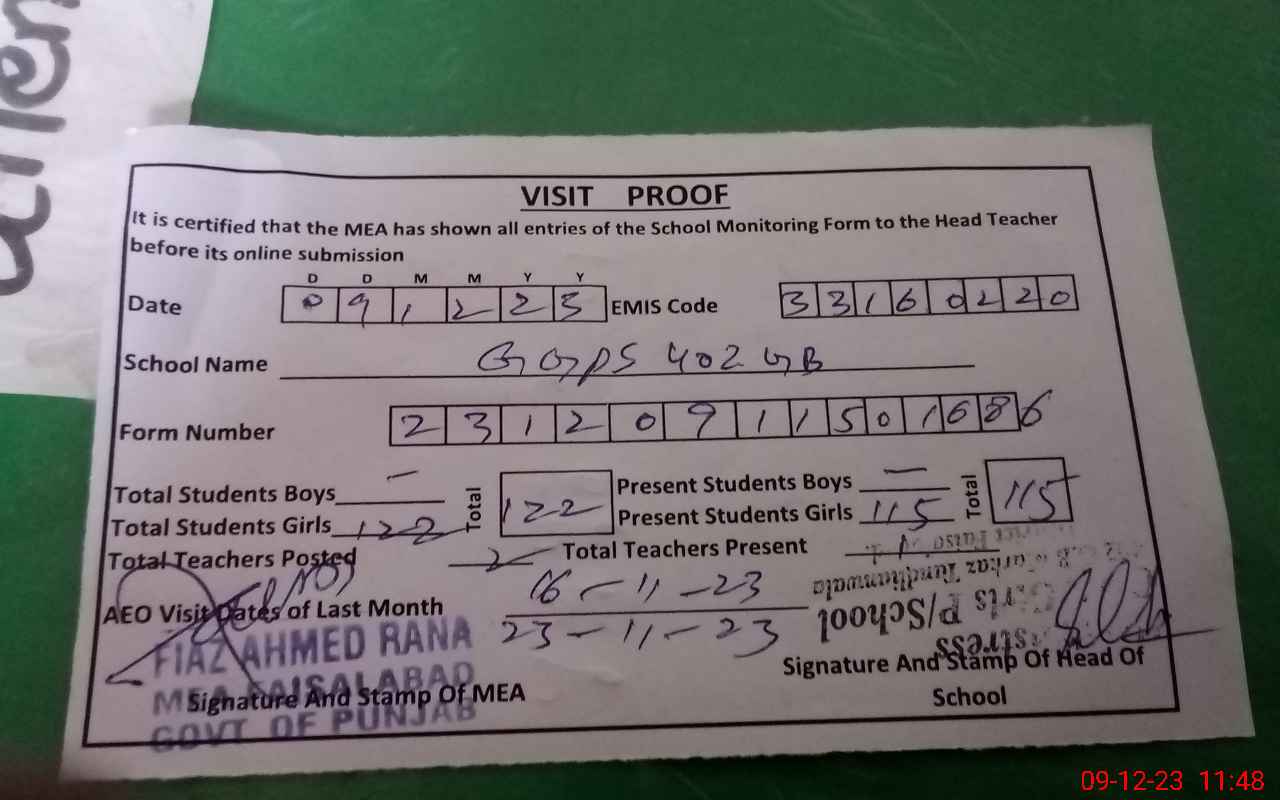 VISIT PROOF
It is certified that the MEA has shown all entries of the School Monitoring Form to the Head Teacher
before its online submission
D D M M Y Y
Date 0 9 1 2 2 3 EMIS Code 3 3 1 6 0 2 2 0
School Name GGPS 402 GB
Form Number 2 3 1 2 0 9 1 1 5 0 1 6 8 6
Total Students Boys — Total 122 Present Students Boys — Total 115
Total Students Girls 122 Present Students Girls 115
Total Teachers Posted 2 Total Teachers Present
AEO Visit Dates of Last Month 16-11-23
23-11-23
FIAZ AHMED RANA
MEA FAISALABAD
GOVT OF PUNJAB
Signature And Stamp Of MEA
P/School
Signature And Stamp Of Head Of
School
09-12-23 11:48